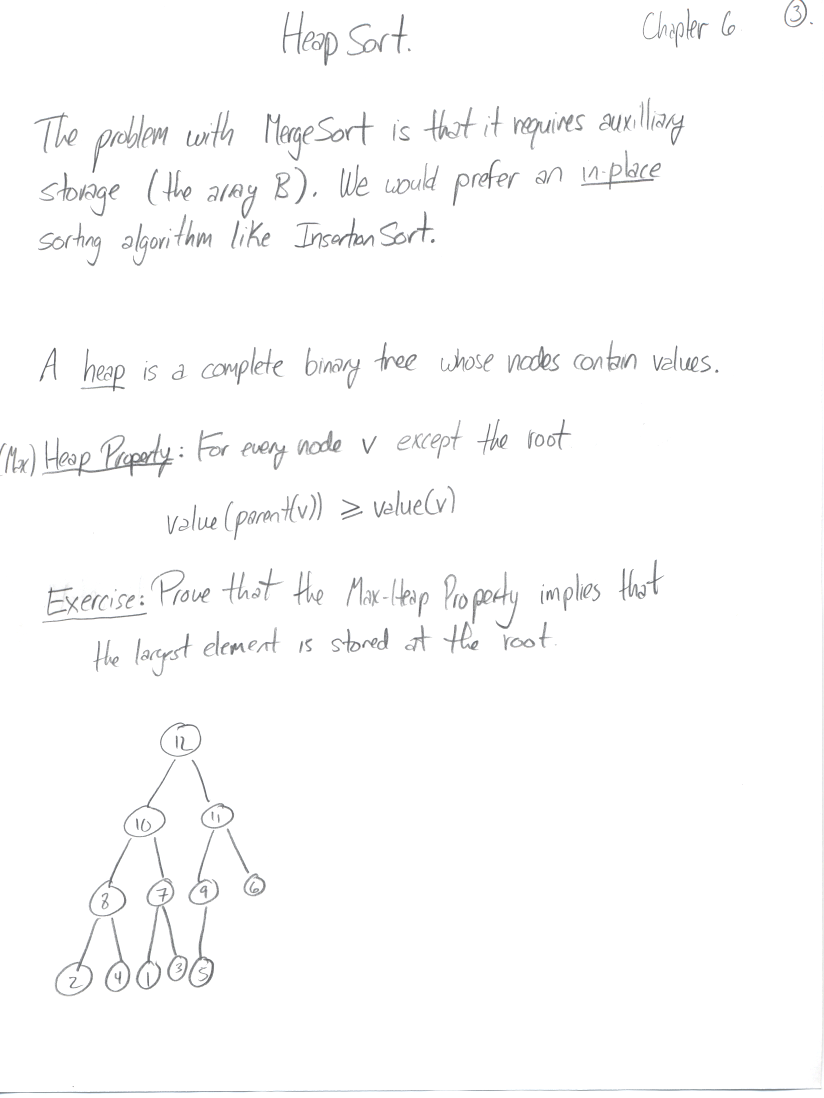 Heap Sort.
Chapter 6
3.
The problem with MergeSort is that it requires auxilliary
storage (the array B). We would prefer an in-place
sorting algorithm like Insertion Sort.
A heap is a complete binary tree whose nodes contain values.
(Max) Heap Property: For every node v except the root
value(parent(v)) ⩾ value(v)
Exercise: Prove that the Max-Heap Property implies that
the largest element is stored at the root.
12
10 11
8 7 9 6
2 4 1 3 5